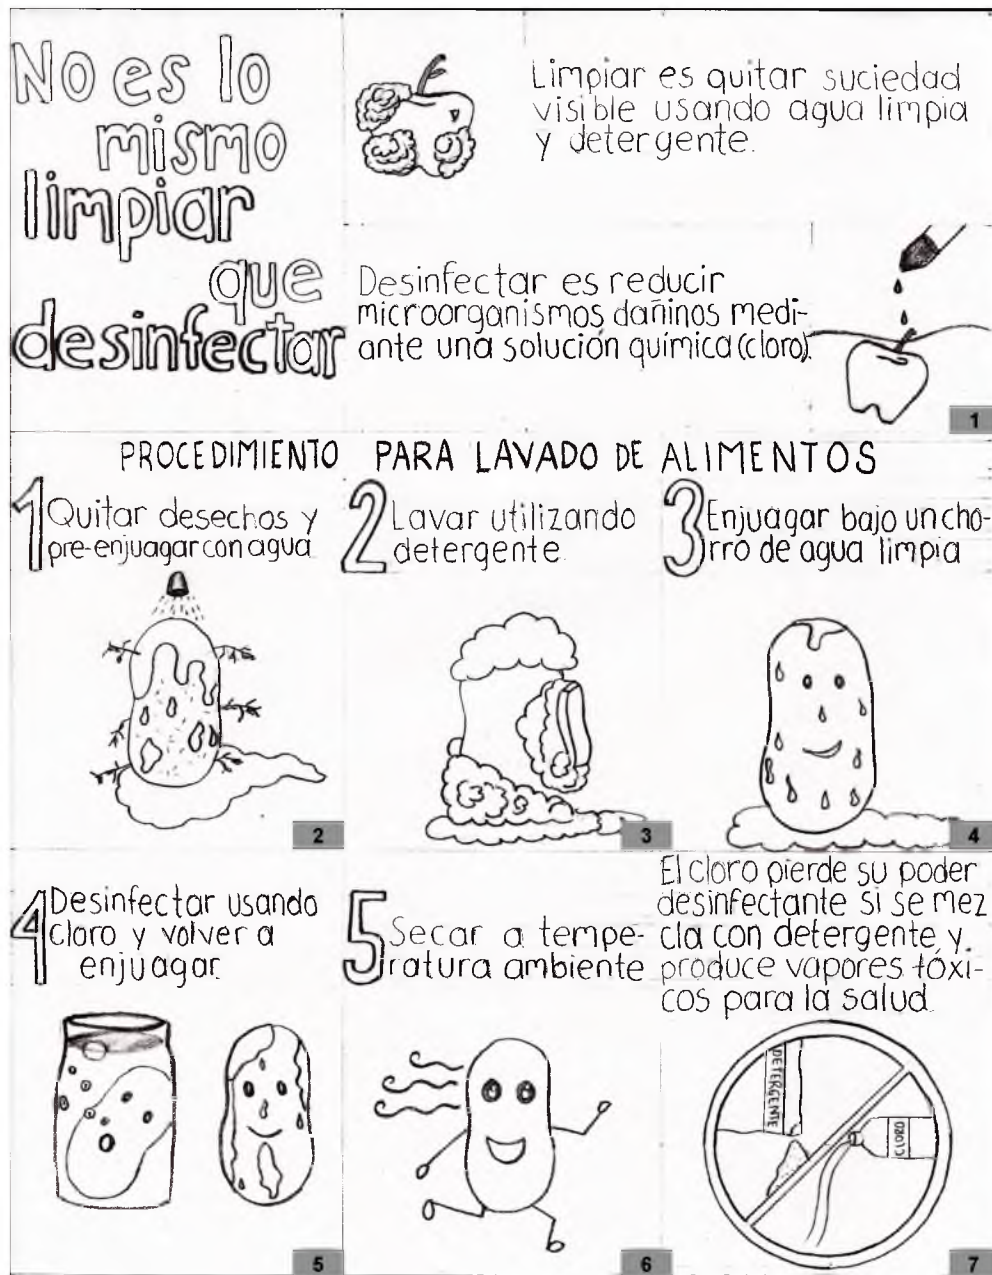 No es lo
mismo
limpiar
que
desinfectar
Limpiar es quitar suciedad
visible usando agua limpia
y detergente.
Desinfectar es reducir
microorganismos dañinos medi-
ante una solución química (cloro).
1
PROCEDIMIENTO PARA LAVADO DE ALIMENTOS
1 Quitar desechos y
pre-enjuagar con agua
2
2 Lavar utilizando
detergente
3
3 Enjuagar bajo un cho-
rro de agua limpia
4
4 Desinfectar usando
cloro y volver a
enjuagar
5
5 Secar a tempe-
ratura ambiente
6
El cloro pierde su poder
desinfectante si se mez
cla con detergente y
produce vapores tóxi-
cos para la salud
DETERGENTE
CLORO
7